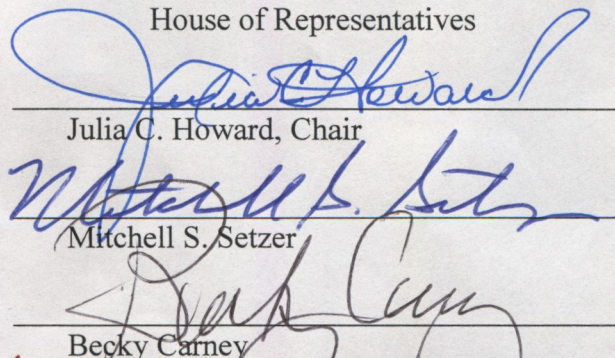 House of Representatives
Julia C. Howard
Julia C. Howard, Chair
Mitchell S. Setzer
Mitchell S. Setzer
Becky Carney
Becky Carney